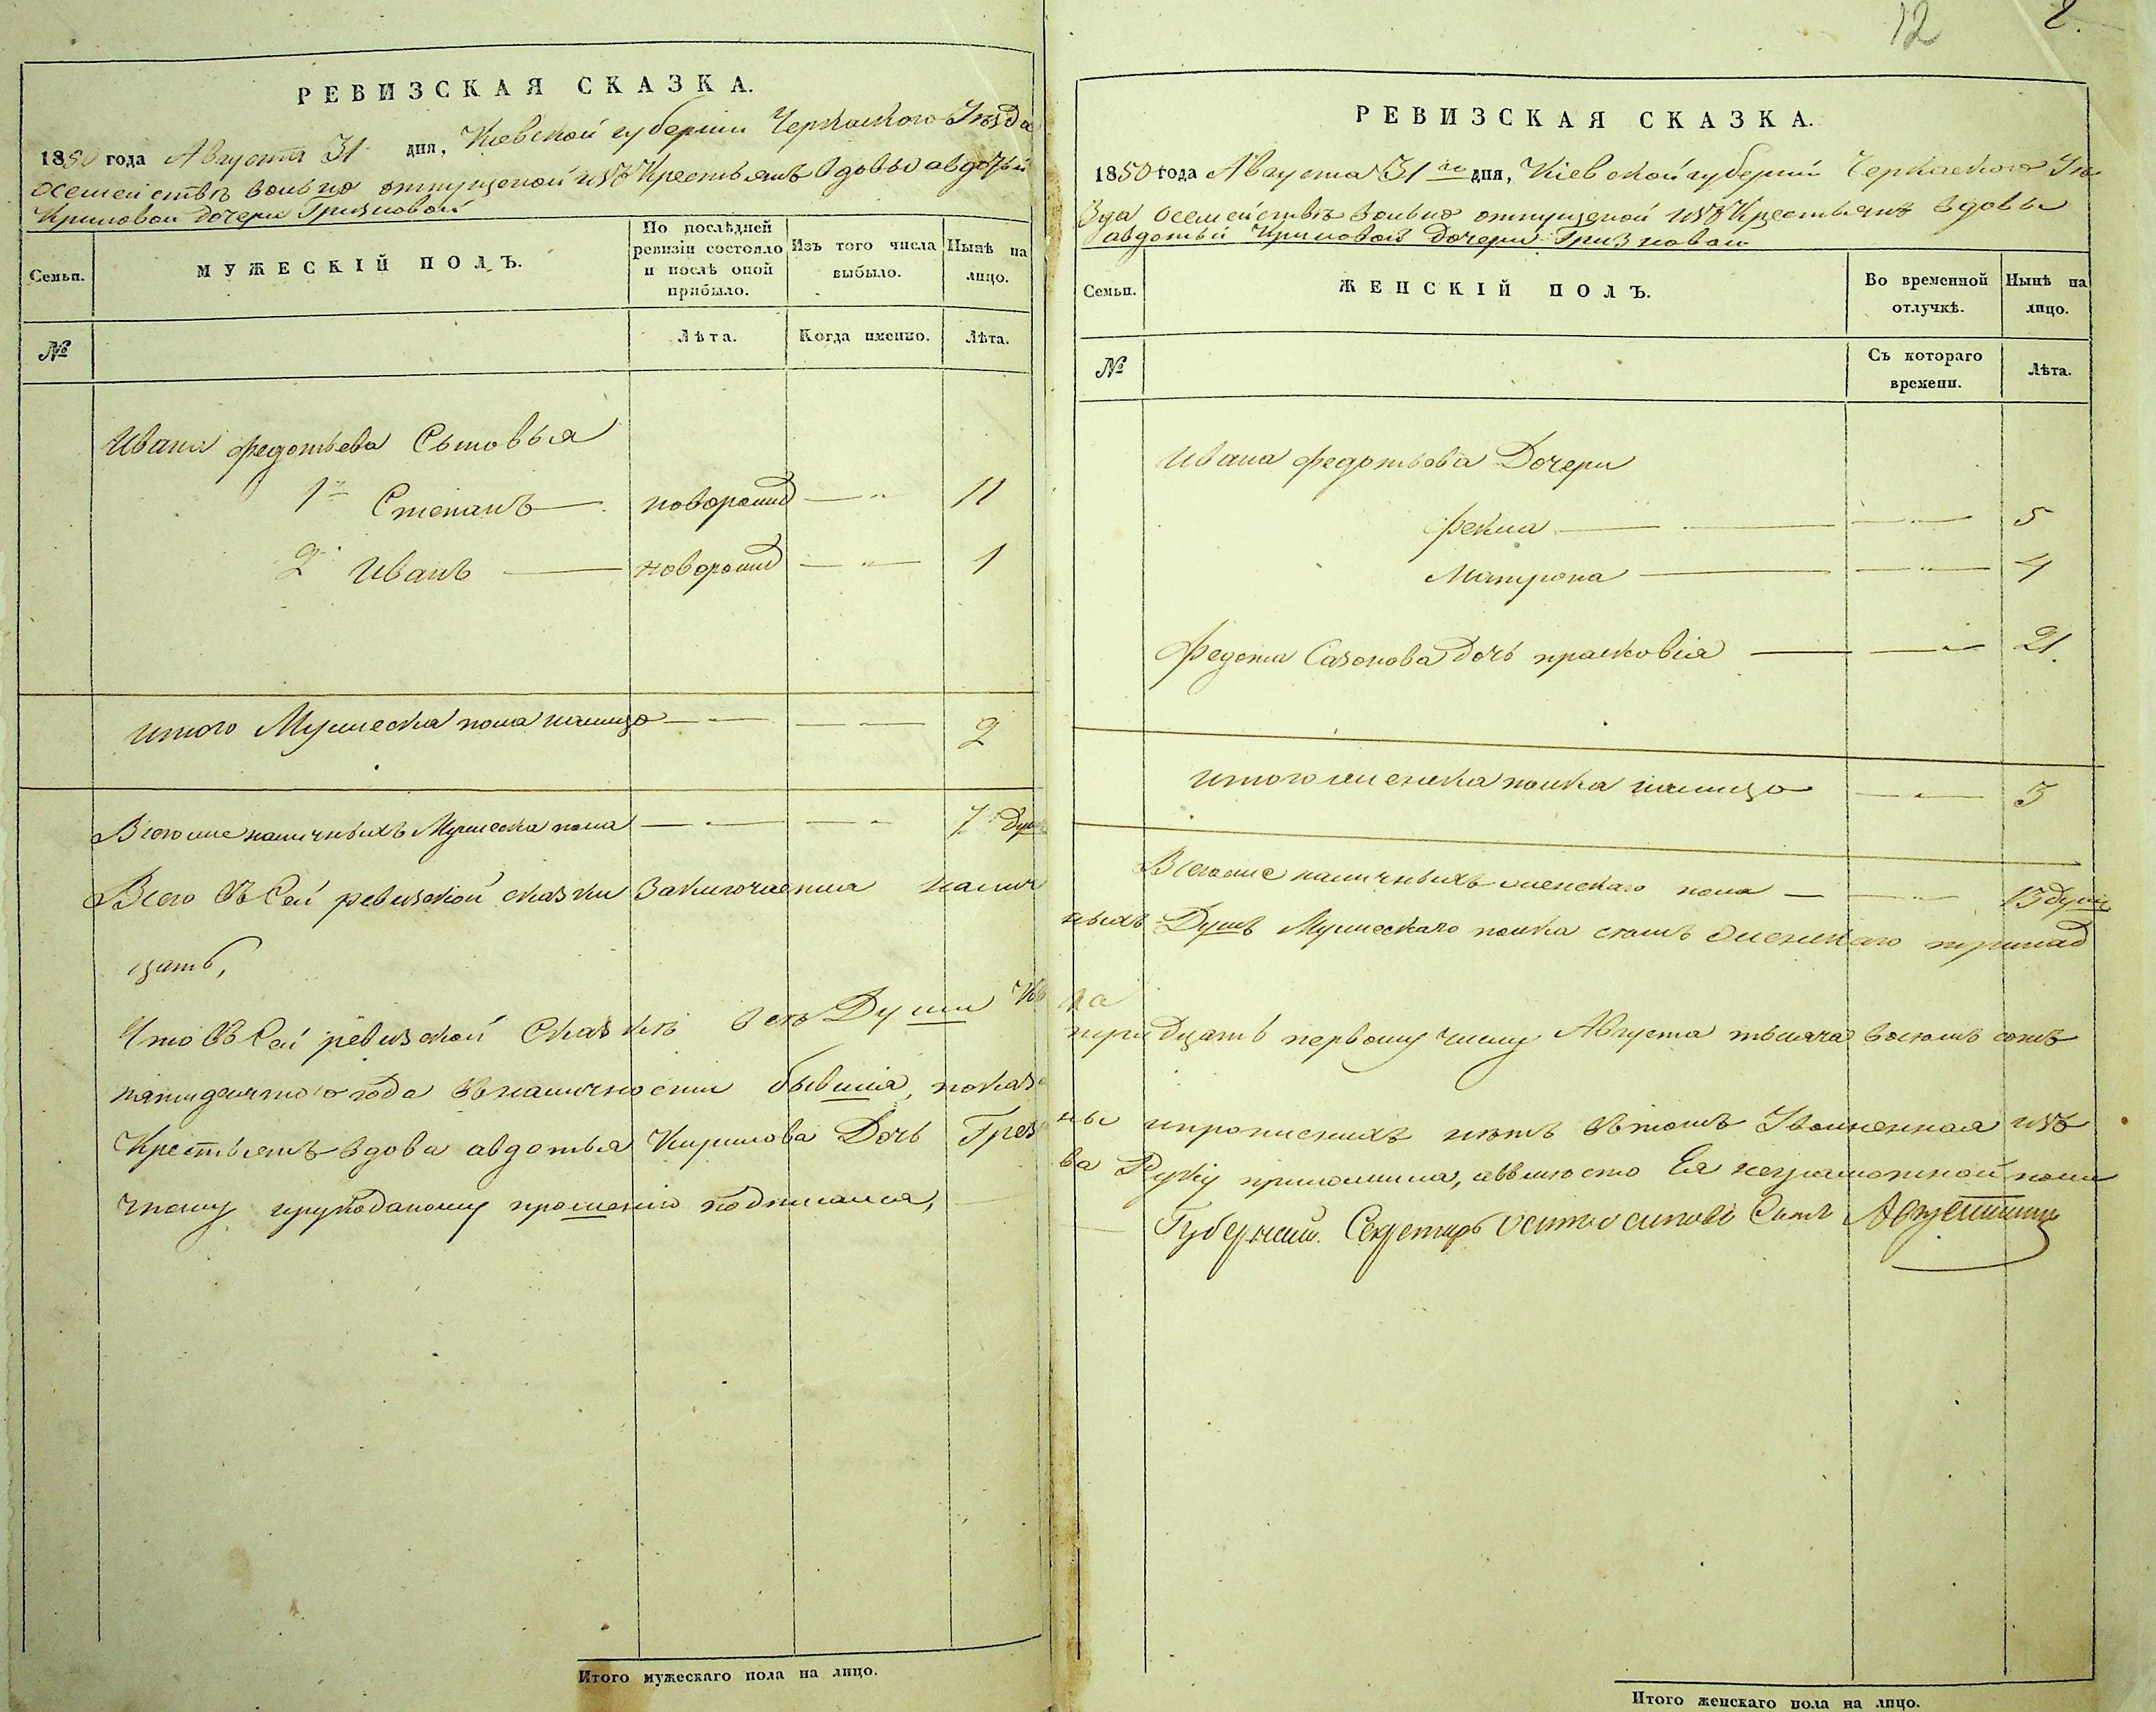 РЕВИЗСКАЯ СКАЗКА.
1850 года Августа 31 дня, Кіевской губерніи Черкаского Уѣзда
осемействѣ вольно отпущеной изъ Крестьянъ вдовы авдотьи
Криловой дочери Гризновой
Семьи.
МУЖЕСКІЙ ПОЛЪ.
По послѣдней ревизіи состояло и послѣ оной прибыло.
Изъ того числа выбыло.
Нынѣ на лицо.
№
Лѣта.
Когда именно.
Лѣта.
Ивана федотьева Сыновья
1й Степанъ — новорожд — " — 11
2й Иванъ — новорожд — " — 1
итого Мужеска пола налицо — — 2
Всегоже наличныхъ Мужеска пола — — 7 душъ
Всего въ Сей ревизской сказки Заключаетца налич
цать,
Что въ Сей ревизской Сказкѣ всѣ Души Къ
пятидесятого года вналичности бывшія, показа
Крестьянъ вдова авдотья Кирилова Дочь Грез
чному ируподаному прошенію подписался,
Итого мужескаго пола на лицо.
12
2.
РЕВИЗСКАЯ СКАЗКА.
1850 года Августа 31 го дня, Кіевской губерніи Черкаского Уѣ
зда осемействѣ вольно отпущеной изъ Крестьянъ вдовы
авдотьи Криловой Дочери Гризновой
Семьи.
ЖЕНСКІЙ ПОЛЪ.
Во временной отлучкѣ.
Нынѣ на лицо.
№
Съ котораго времени.
Лѣта.
Ивана федотьова Дочери
Фекла — — — " — 5
Матрона — — " — 4
Федота Сазонова дочь прасковія — — " — 21.
итого женска полка налицо — " — 3
Всегоже наличныхъ женскаго пола — — 13 душъ
ныхъ Душъ Мужескаго полка семь Женскаго тринад
тридцать первому числу Августа тысяча восемь сотъ
ны ипрописныхъ нѣтъ втомъ Уволненная изъ
ва Руку приложила, авместо Ея неграмотной по
Губернский Секретарь Сынъ
Итого женскаго пола на лицо.